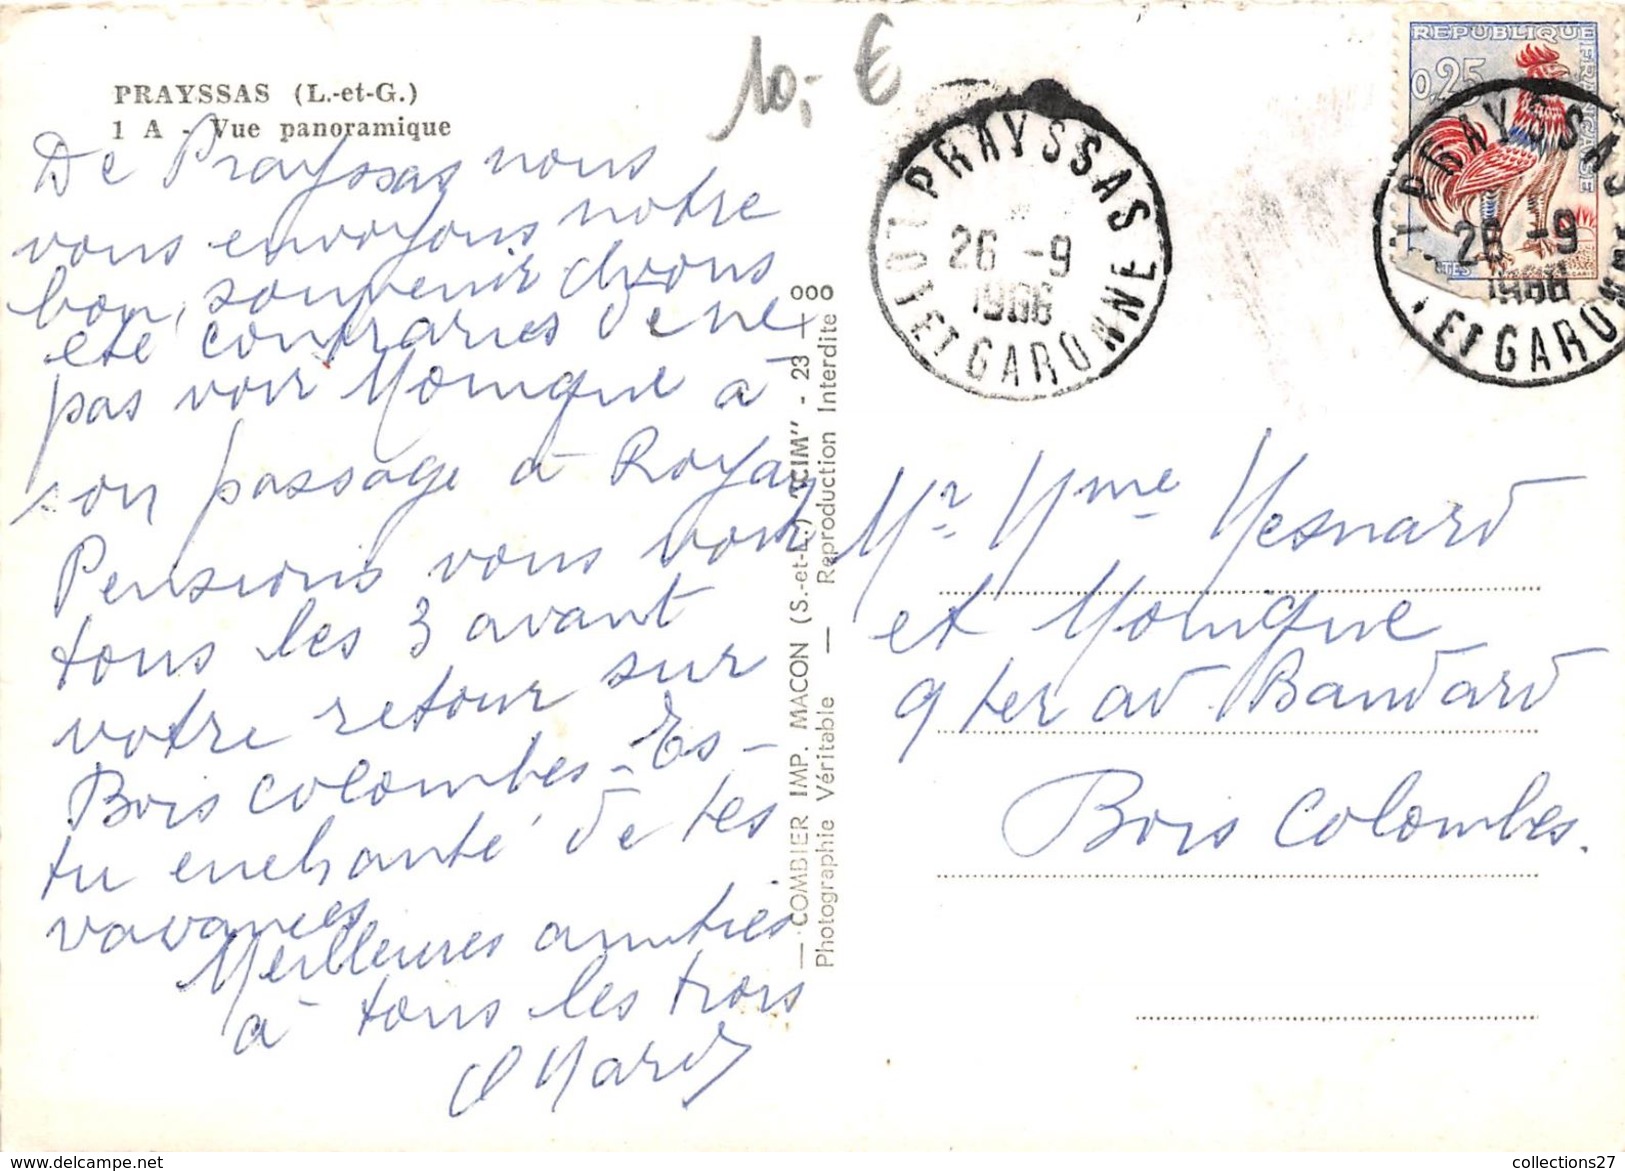 PRAYSSAS (L.-et-G.)
1 A - Vue panoramique
10,- €
De Prayssas nous
vous envoyons notre
bon souvenir avons
été contrariés de ne
pas voir Monique à
son passage à Royan
Pensions vous voir
tous les 3 avant
votre retour sur
Bois Colombes - Es-
tu enchanté de tes
vavances
Meilleures amitiés
à tous les trois
— COMBIER IMP. MACON (S.-et-L.) "CIM" - 23 - + 000
Photographie Véritable — Reproduction Interdite
PRAYSSAS
26 -9
1966
LOT ET GARONNE
REPUBLIQUE FRANÇAISE
0,25
PRAYSSAS
26 -9
1966
ET GARONNE
Mr Mme Mesnard
et Monique
9 ter av Baudard
Bois Colombes.
collections27